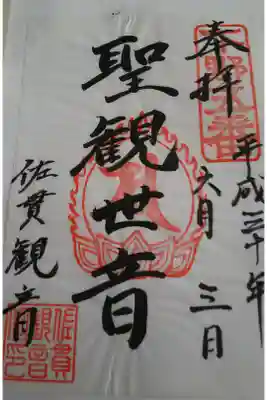 奉拝
平成三十年
六月三日
聖観世音
佐貫観音
佐貫
観音
之印